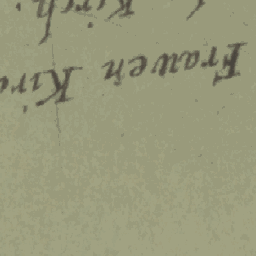 Frawen Kirc
Kirch.